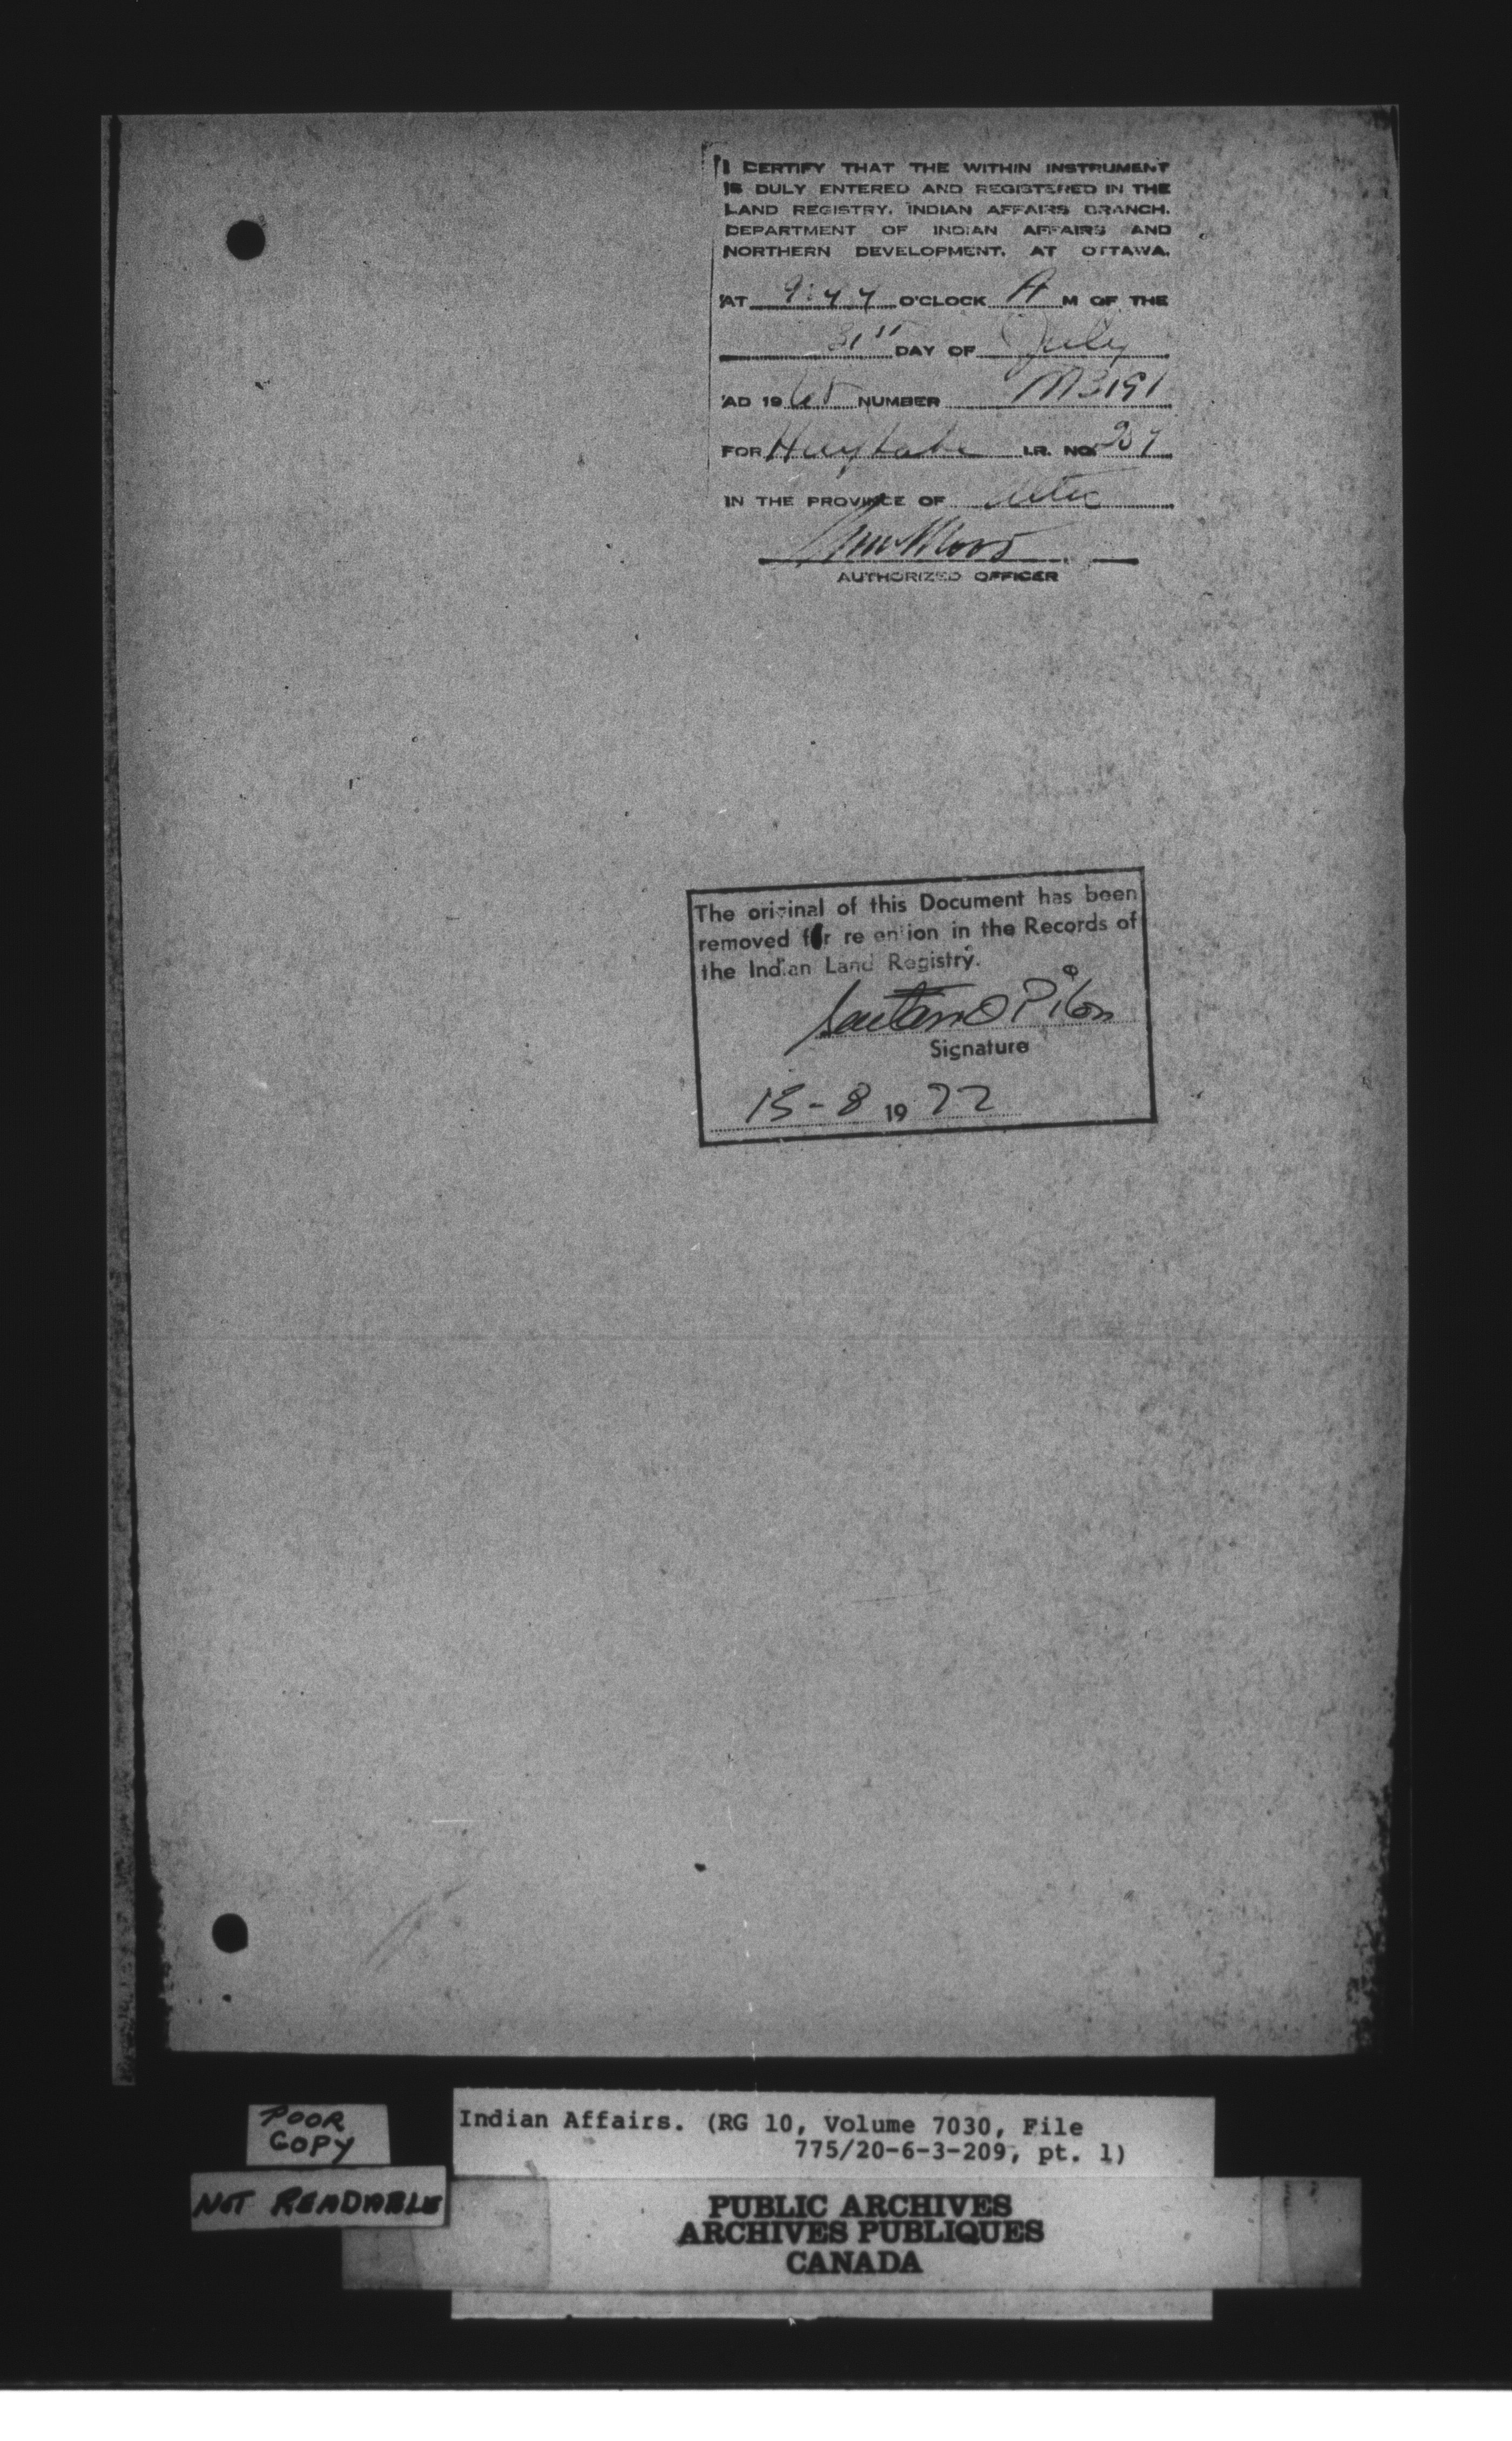 I CERTIFY THAT THE WITHIN INSTRUMENT
IS DULY ENTERED AND REGISTERED IN THE
LAND REGISTRY, INDIAN AFFAIRS BRANCH,
DEPARTMENT OF INDIAN AFFAIRS AND
NORTHERN DEVELOPMENT, AT OTTAWA.
AT 9:44 O'CLOCK A M OF THE
31st DAY OF July
AD 19 NUMBER M3191
FOR Hay Lake I.R. NO. 209
IN THE PROVINCE OF Alta
AUTHORIZED OFFICER
The original of this Document has been
removed for re en ion in the Records of
the Indian Land Registry.
Pilon
Signature
15-8 1972
POOR
COPY
NOT READABLE
Indian Affairs. (RG 10, Volume 7030, File
775/20-6-3-209, pt. 1)
PUBLIC ARCHIVES
ARCHIVES PUBLIQUES
CANADA